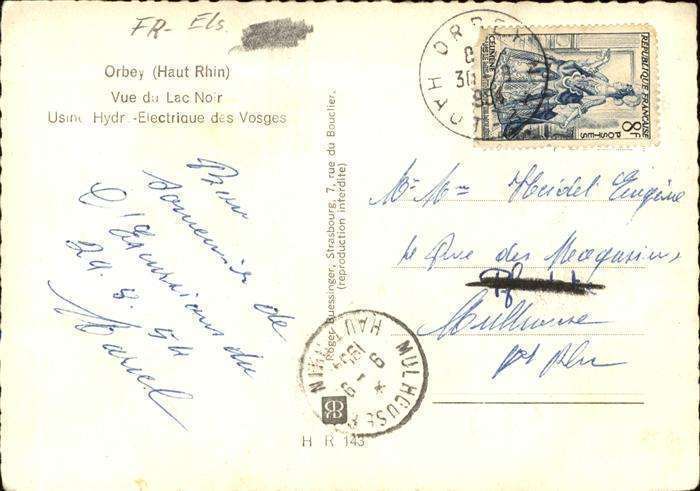 FR- Els.
Orbey (Haut Rhin)
Vue du Lac Noir
Usine Hydr.-Electrique des Vosges
Bon
souvenir de
l'Excursion du
29.8.54
Marcel
Roger Buessinger, Strasbourg, 7, rue du Bouclier.
(reproduction interdite)
H R 143
ORBEY
30
REPUBLIQUE FRANÇAISE
8F
POSTES
Mr Mme Heidel Eugène
Rue des Magasins
Mulhouse
Ht Rhin
MULHOUSE
HAUT-RHIN
9-9